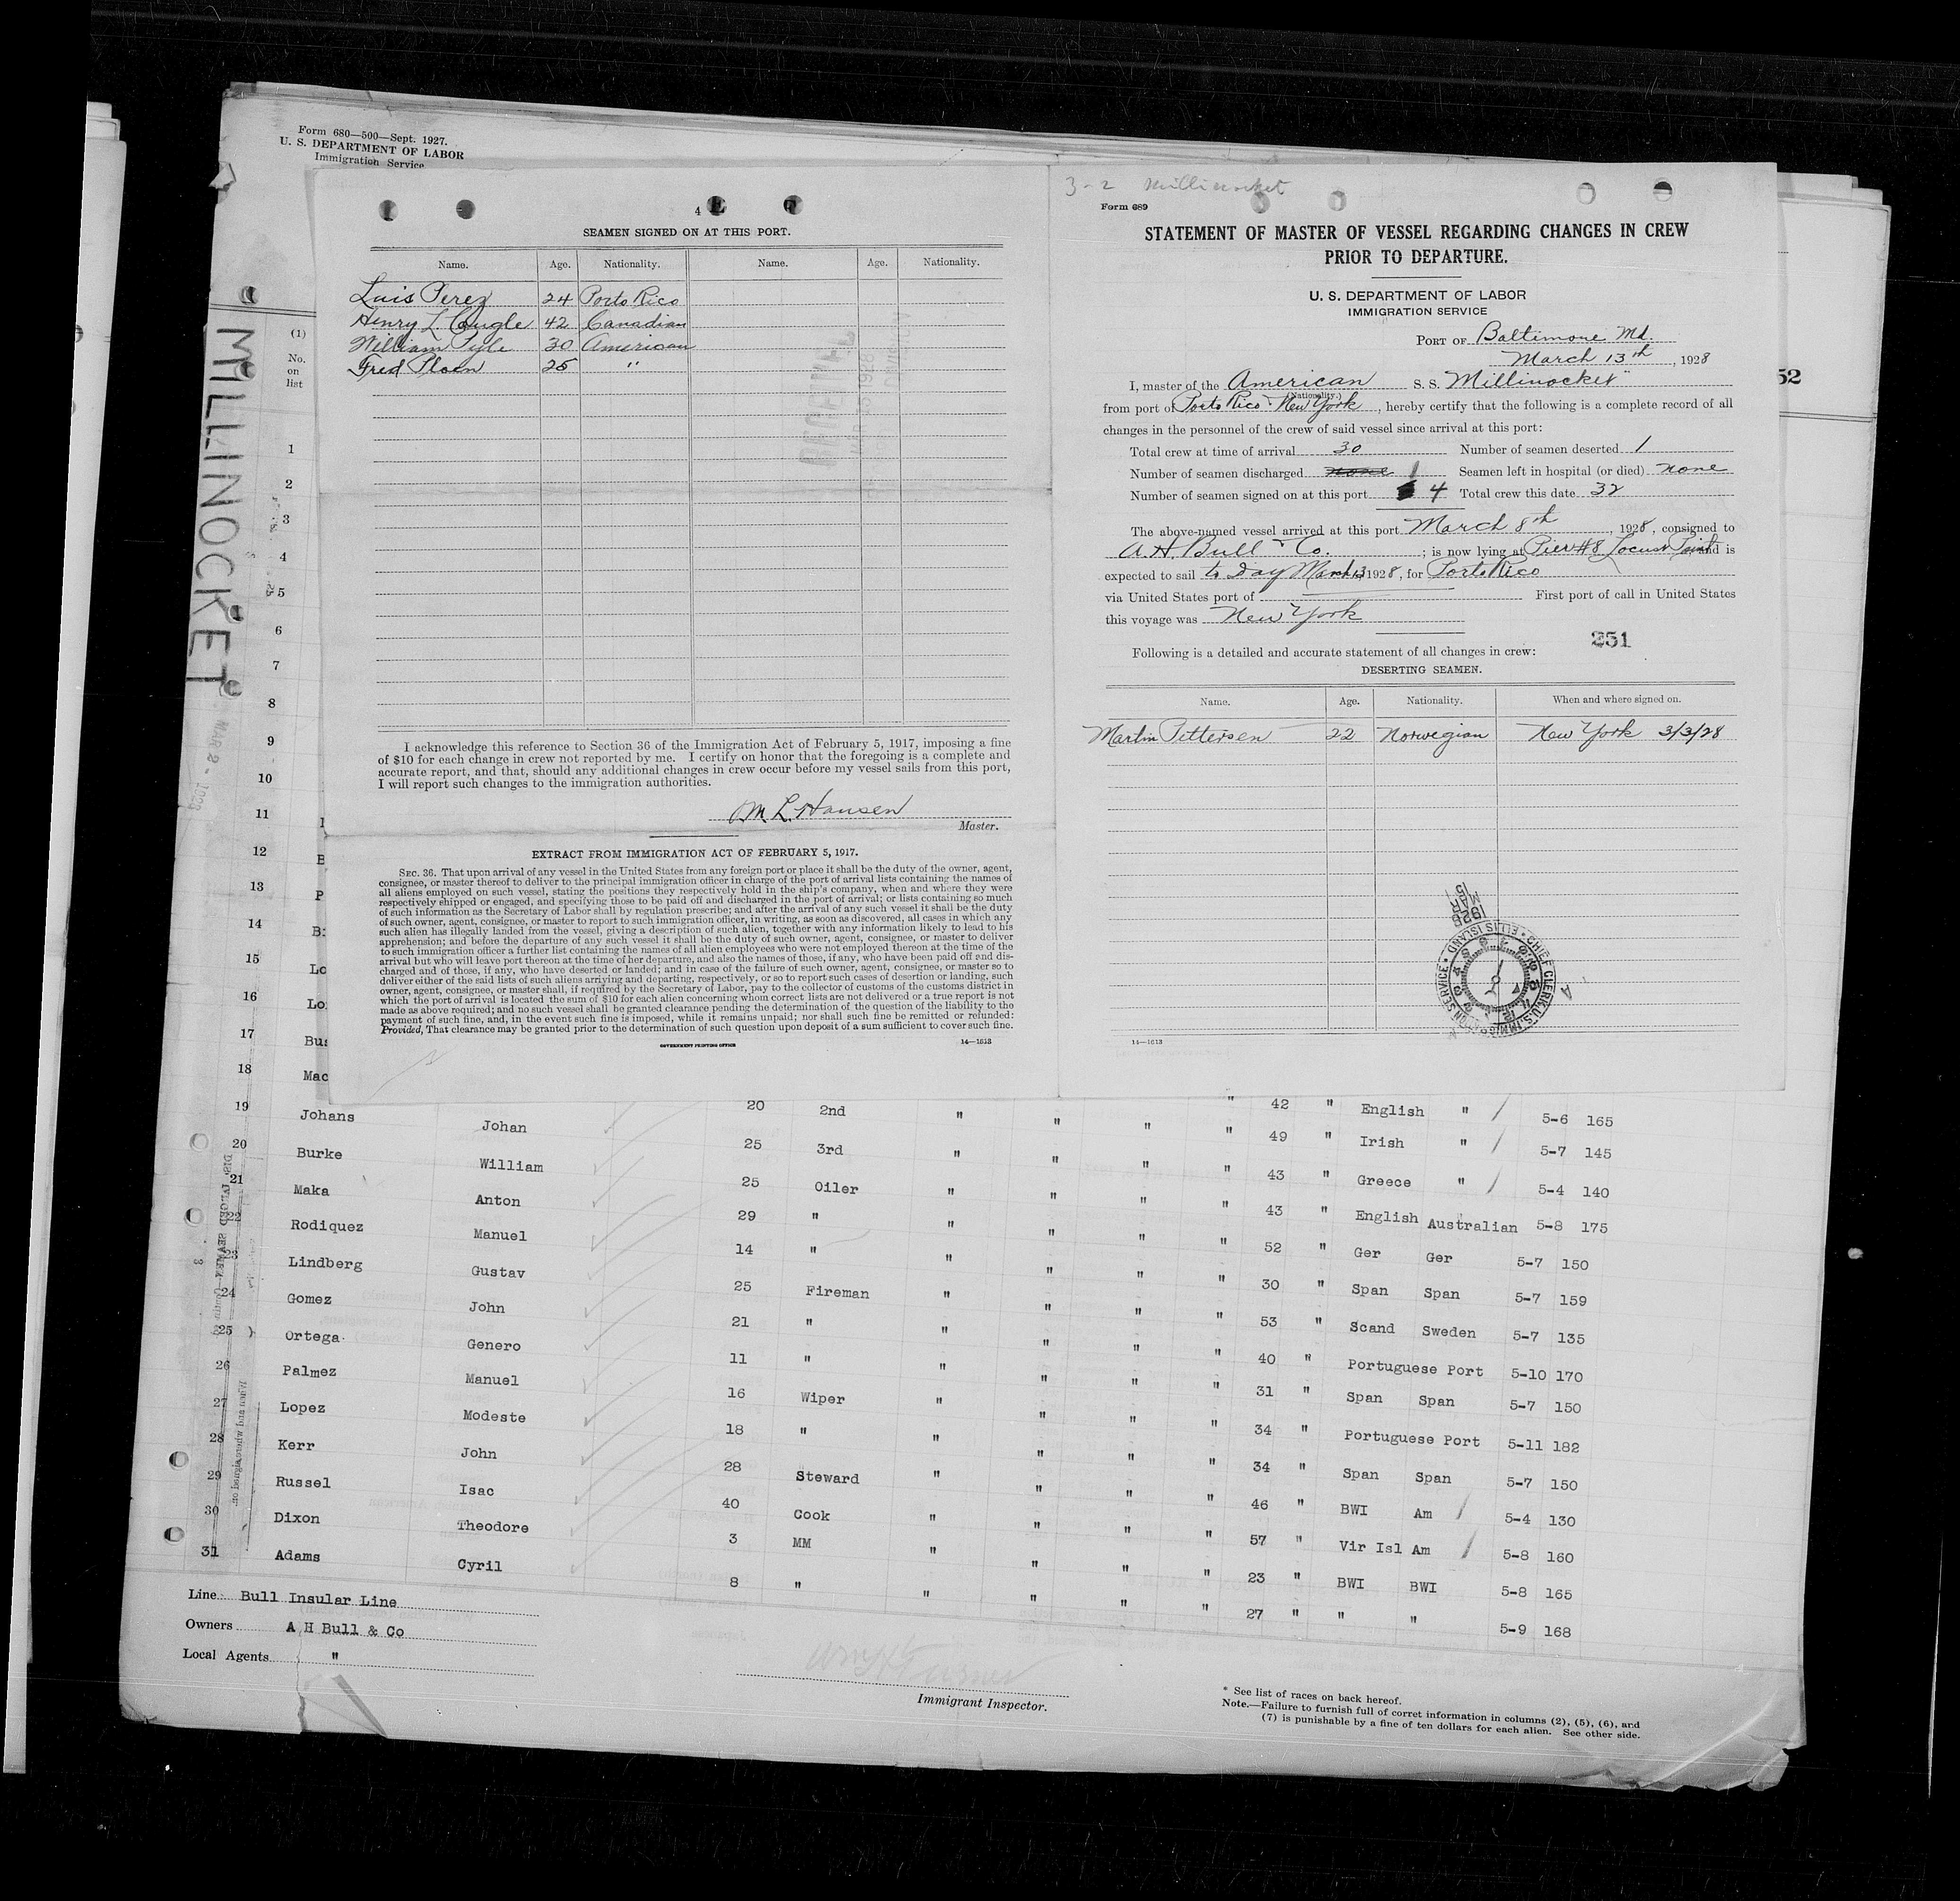 Form 680—500—Sept. 1927.
U. S. DEPARTMENT OF LABOR
Immigration Service
MILLINOCKET
MAR 2 - 1928
(1)
No.
on
list
1
2
3
4
5
6
7
8
9
10
11
12
13
14
15
16
17
18
4
SEAMEN SIGNED ON AT THIS PORT.
Name. Age. Nationality. Name. Age. Nationality.
Luis Perez 24 Porto Rico
Henry L. Cougle 42 Canadian
William Pyle 30 American
Fred Ploen 25 "
I acknowledge this reference to Section 36 of the Immigration Act of February 5, 1917, imposing a fine
of $10 for each change in crew not reported by me. I certify on honor that the foregoing is a complete and
accurate report, and that, should any additional changes in crew occur before my vessel sails from this port,
I will report such changes to the immigration authorities.
M. L. Hansen
Master.
EXTRACT FROM IMMIGRATION ACT OF FEBRUARY 5, 1917.
SEC. 36. That upon arrival of any vessel in the United States from any foreign port or place it shall be the duty of the owner, agent,
consignee, or master thereof to deliver to the principal immigration officer in charge of the port of arrival lists containing the names of
all aliens employed on such vessel, stating the positions they respectively hold in the ship's company, when and where they were
respectively shipped or engaged, and specifying those to be paid off and discharged in the port of arrival; or lists containing so much
of such information as the Secretary of Labor shall by regulation prescribe; and after the arrival of any such vessel it shall be the duty
of such owner, agent, consignee, or master to report to such immigration officer, in writing, as soon as discovered, all cases in which any
such alien has illegally landed from the vessel, giving a description of such alien, together with any information likely to lead to his
apprehension; and before the departure of any such vessel it shall be the duty of such owner, agent, consignee, or master to deliver
to such immigration officer a further list containing the names of all alien employees who were not employed thereon at the time of the
arrival but who will leave port thereon at the time of her departure, and also the names of those, if any, who have been paid off and dis-
charged and of those, if any, who have deserted or landed; and in case of the failure of such owner, agent, consignee, or master so to
deliver either of the said lists of such aliens arriving and departing, respectively, or so to report such cases of desertion or landing, such
owner, agent, consignee, or master shall, if required by the Secretary of Labor, pay to the collector of customs of the customs district in
which the port of arrival is located the sum of $10 for each alien concerning whom correct lists are not delivered or a true report is not
made as above required; and no such vessel shall be granted clearance pending the determination of the question of the liability to the
payment of such fine, and, in the event such fine is imposed, while it remains unpaid; nor shall such fine be remitted or refunded:
Provided, That clearance may be granted prior to the determination of such question upon deposit of a sum sufficient to cover such fine.
GOVERNMENT PRINTING OFFICE 14—1613
3-2 Millinocket
Form 689
STATEMENT OF MASTER OF VESSEL REGARDING CHANGES IN CREW
PRIOR TO DEPARTURE.
U. S. DEPARTMENT OF LABOR
IMMIGRATION SERVICE
PORT OF Baltimore Md.
March 13th, 1928
I, master of the American S. S. Millinocket"
(Nationality.)
from port of Porto Rico & New York, hereby certify that the following is a complete record of all
changes in the personnel of the crew of said vessel since arrival at this port:
Total crew at time of arrival 30 Number of seamen deserted 1
Number of seamen discharged none 1 Seamen left in hospital (or died) none
Number of seamen signed on at this port 4 Total crew this date 32
The above-named vessel arrived at this port March 8th, 1928, consigned to
A. H. Bull & Co. ; is now lying at Pier #8 Locust Point and is
expected to sail to Day March 13 1928, for Porto Rico
via United States port of First port of call in United States
this voyage was New York
251
Following is a detailed and accurate statement of all changes in crew:
DESERTING SEAMEN.
Name. Age. Nationality. When and where signed on.
Martin Pettersen 22 Norwegian New York 3/3/28
1928 MAR 15
CHIEF CLERK U.S. IMMIGRATION SERVICE • ELLIS ISLAND
14—1613
52
19 Johans Johan 20 2nd " " " " 42 " English " / 5-6 165
20 Burke William 25 3rd " " " " 49 " Irish " / 5-7 145
21 Maka Anton 25 Oiler " " " " 43 " Greece " / 5-4 140
22 Rodiquez Manuel 29 " " " " " 43 " English Australian 5-8 175
Lindberg Gustav 14 " " " " " 52 " Ger Ger 5-7 150
24 Gomez John 25 Fireman " " " " 30 " Span Span 5-7 159
25 Ortega Genero 21 " " " " " 53 " Scand Sweden 5-7 135
26 Palmez Manuel 11 " " " " " 40 " Portuguese Port 5-10 170
27 Lopez Modeste 16 Wiper " " " " 31 " Span Span 5-7 150
28 Kerr John 18 " " " " " 34 " Portuguese Port 5-11 182
29 Russel Isac 28 Steward " " " " 34 " Span Span 5-7 150
30 Dixon Theodore 40 Cook " " " " 46 " BWI Am / 5-4 130
31 Adams Cyril 3 MM " " " " 57 " Vir Isl Am / 5-8 160
8 " " " " " 23 " BWI BWI 5-8 165
27 " " " 5-9 168
Line Bull Insular Line
Owners A H Bull & Co
Local Agents "
Immigrant Inspector.
* See list of races on back hereof.
Note.—Failure to furnish full of corret information in columns (2), (5), (6), and
(7) is punishable by a fine of ten dollars for each alien. See other side.